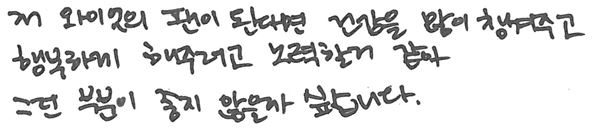 저 와이프의 팬이 된다면 건강을 많이 챙겨주고
행복하게 해주려고 노력할거 같아
그런 부분이 좋지 않을까 싶습니다.